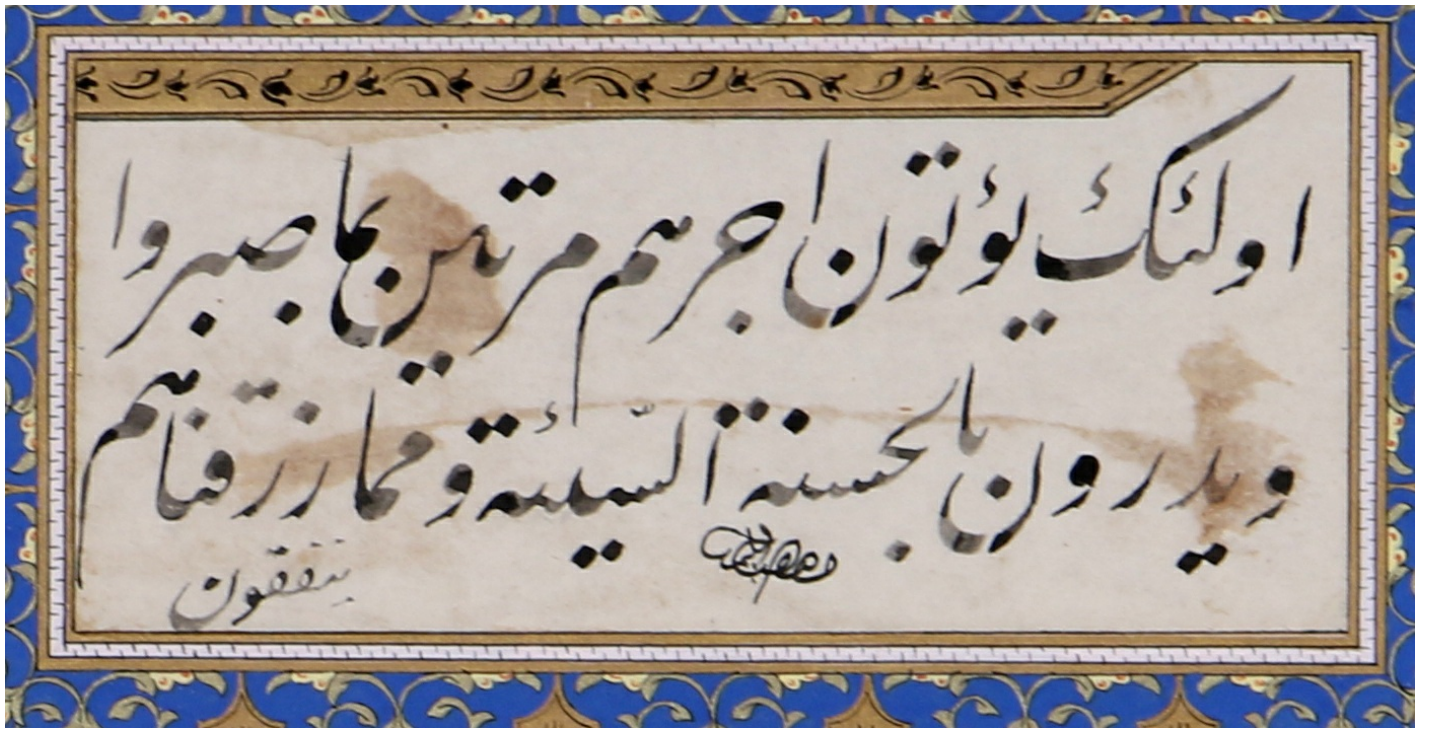 اولئك يؤتون اجرهم مرتين بما صبروا
ويدرون بالحسنة السّيئة ومما رزقناهم
ينفقون